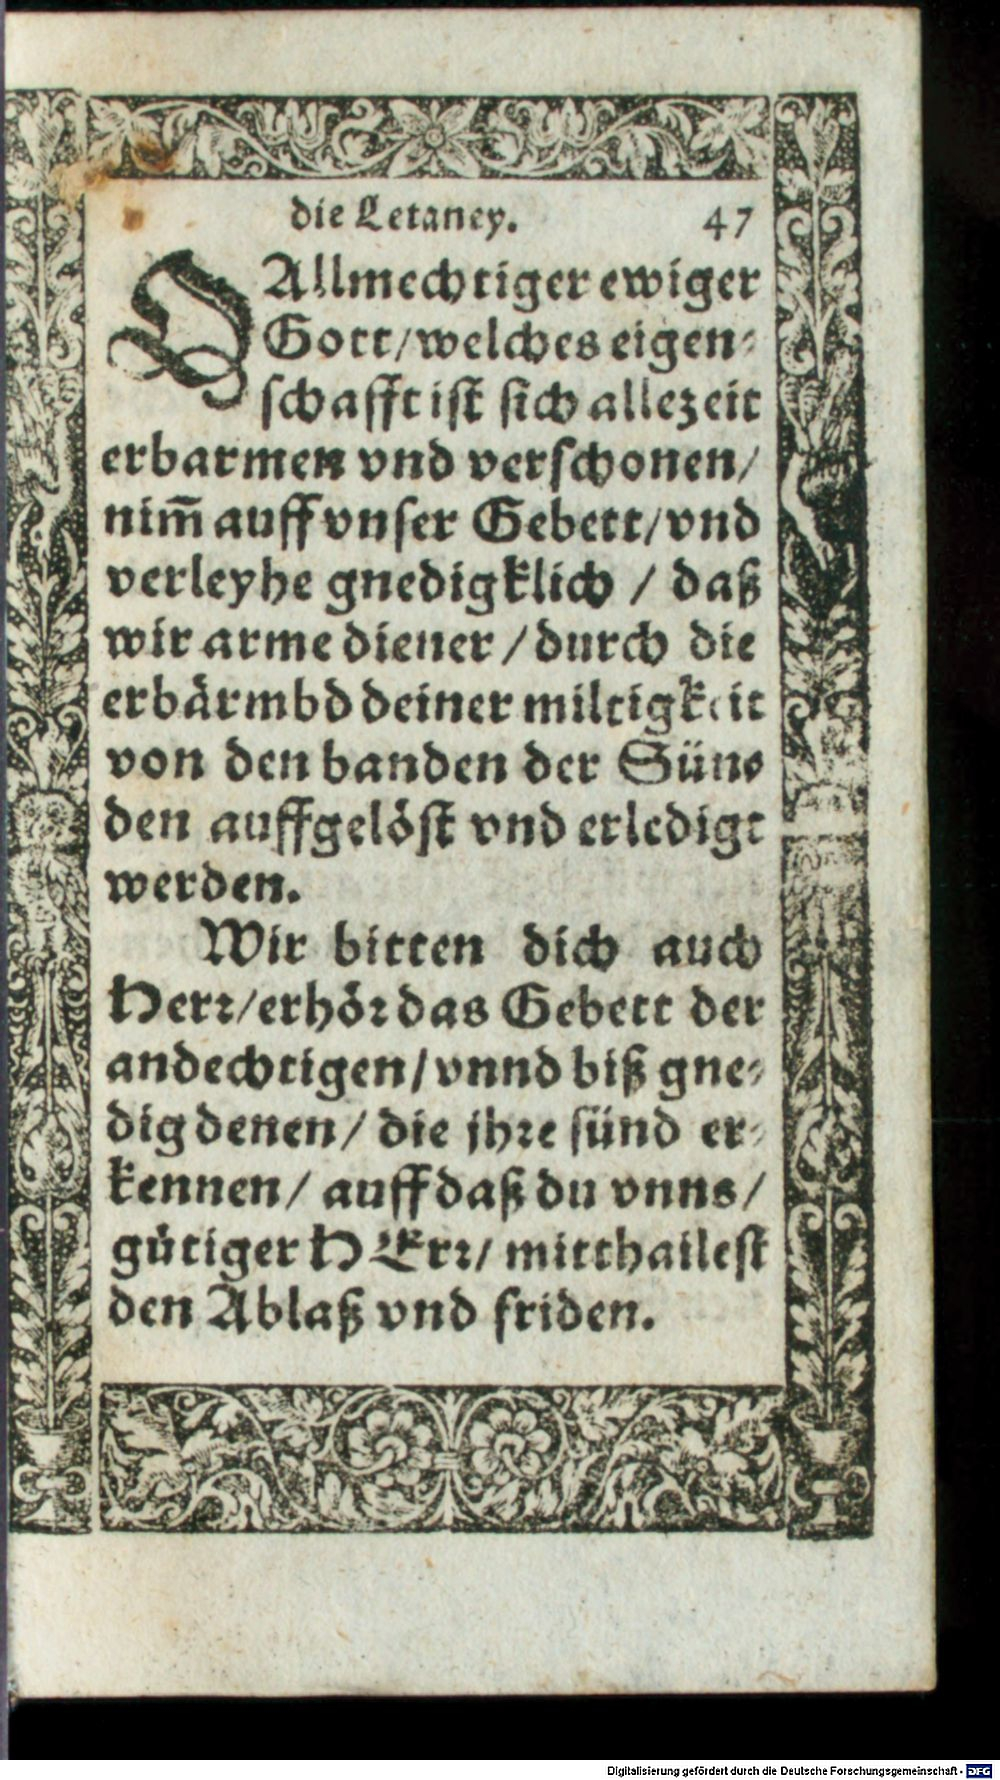 die Letaney. 47
O Allmechtiger ewiger
Gott/welches eigen-
schafft ist sich allezeit
erbarmen vnd verschonen/
nim̃ auff vnser Gebett/vnd
verleyhe gnedigklich / daß
wir arme diener / durch die
erbärmbd deiner miltigkeit
von den banden der Sün-
den auffgelöst vnd erledigt
werden.
Wir bitten dich auch
Herr/erhör das Gebett der
andechtigen/vnnd biß gne-
dig denen/ die jhre sünd er-
kennen/ auff daß du vnns/
gütiger HErr/ mitthailest
den Ablaß vnd friden.
Digitalisierung gefördert durch die Deutsche Forschungsgemeinschaft - DFG